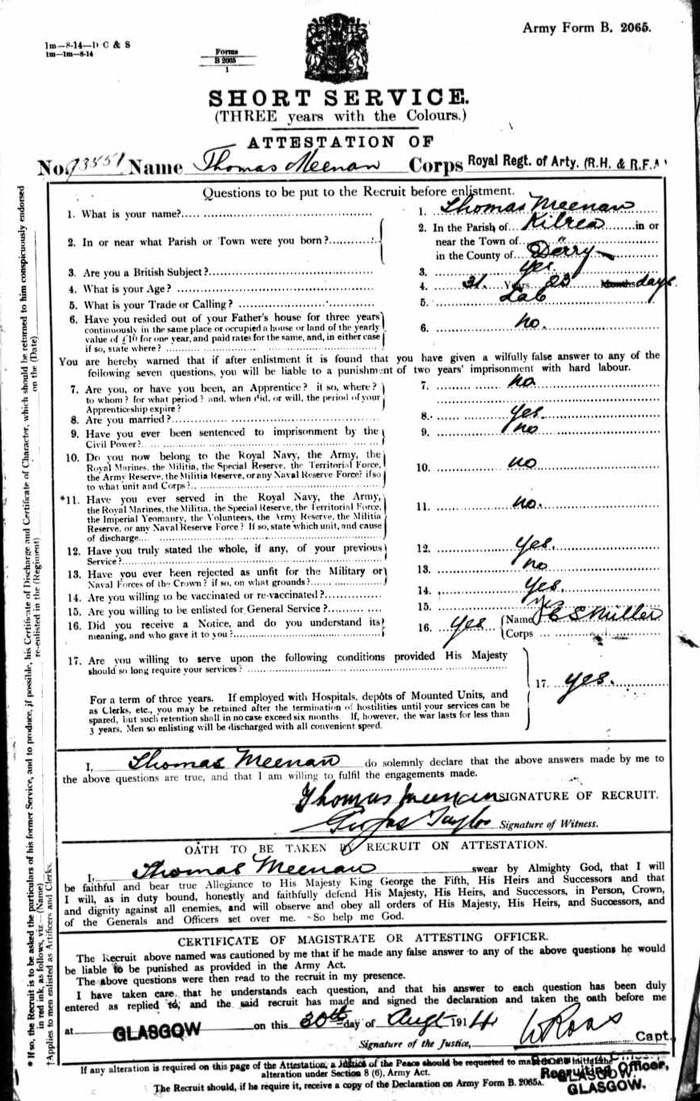 1m—8-14—D C & S
1m—1m—8-14
Forms
B 2065
1
Army Form B. 2065.
SHORT SERVICE.
(THREE years with the Colours.)
ATTESTATION OF
No. 93551 Name Thomas Meenan Corps Royal Regt. of Arty. (R.H. & R.F.A
Questions to be put to the Recruit before enlistment.
1. What is your name?.... 1. Thomas Meenan
2. In or near what Parish or Town were you born?.... 2. In the Parish of Kilrea in or
near the Town of
in the County of Derry
3. Are you a British Subject?.... 3. Yes
4. What is your Age?.... 4. 31 Years 23 Months days
5. What is your Trade or Calling?.... 5. Lab
6. Have you resided out of your Father's house for three years
continuously in the same place or occupied a house or land of the yearly
value of £10 for one year, and paid rates for the same, and, in either case
if so, state where?.... 6. No.
You are hereby warned that if after enlistment it is found that you have given a wilfully false answer to any of the
following seven questions, you will be liable to a punishment of two years' imprisonment with hard labour.
7. Are you, or have you been, an Apprentice? if so, where?
to whom? for what period? and, when did, or will, the period of your
Apprenticeship expire? 7. no
8. Are you married?.... 8. Yes
9. Have you ever been sentenced to imprisonment by the
Civil Power?.... 9. no
10. Do you now belong to the Royal Navy, the Army, the
Royal Marines, the Militia, the Special Reserve, the Territorial Force,
the Army Reserve, the Militia Reserve, or any Naval Reserve Force? if so
to what unit and Corps?.... 10. no
*11. Have you ever served in the Royal Navy, the Army,
the Royal Marines, the Militia, the Special Reserve, the Territorial Force,
the Imperial Yeomanry, the Volunteers, the Army Reserve, the Militia
Reserve, or any Naval Reserve Force? If so, state which unit, and cause
of discharge.... 11. no.
12. Have you truly stated the whole, if any, of your previous
Service?.... 12. Yes.
13. Have you ever been rejected as unfit for the Military or
Naval Forces of the Crown? if so, on what grounds?.... 13. no
14. Are you willing to be vaccinated or re-vaccinated?.... 14. Yes
15. Are you willing to be enlisted for General Service?.... 15. Y
16. Did you receive a Notice, and do you understand its
meaning, and who gave it to you?.... 16. Yes (Name E S Miller
(Corps
17. Are you willing to serve upon the following conditions provided His Majesty
should so long require your services?
For a term of three years. If employed with Hospitals, depôts of Mounted Units, and
as Clerks, etc., you may be retained after the termination of hostilities until your services can be
spared, but such retention shall in no case exceed six months. If, however, the war lasts for less than
3 years, Men so enlisting will be discharged with all convenient speed.
17. Yes.
I, Thomas Meenan do solemnly declare that the above answers made by me to
the above questions are true, and that I am willing to fulfil the engagements made.
Thomas Meenan SIGNATURE OF RECRUIT.
Taylor Signature of Witness.
OATH TO BE TAKEN BY RECRUIT ON ATTESTATION.
I, Thomas Meenan swear by Almighty God, that I will
be faithful and bear true Allegiance to His Majesty King George the Fifth, His Heirs and Successors and that
I will, as in duty bound, honestly and faithfully defend His Majesty, His Heirs, and Successors, in Person, Crown,
and dignity against all enemies, and will observe and obey all orders of His Majesty, His Heirs, and Successors, and
of the Generals and Officers set over me. So help me God.
CERTIFICATE OF MAGISTRATE OR ATTESTING OFFICER.
The Recruit above named was cautioned by me that if he made any false answer to any of the above questions he would
be liable to be punished as provided in the Army Act.
The above questions were then read to the recruit in my presence.
I have taken care that he understands each question, and that his answer to each question has been duly
entered as replied to; and the said recruit has made and signed the declaration and taken the oath before me
at GLASGOW on this 30th day of Augt 1914
Signature of the Justice, W Ross Capt.
Recruiting Officer,
GLASGOW.
If any alteration is required on this page of the Attestation, a Justice of the Peace should be requested to make
alteration under Section 8 (6), Army Act.
The Recruit should, if he require it, receive a copy of the Declaration on Army Form B. 2065A.
* If so, the Recruit is to be asked the particulars of his former Service, and to produce, if possible, his Certificate of Discharge and Certificate of Character, which should be returned to him conspicuously endorsed
in red ink, as follows, viz.—(Name) re-enlisted in the (Regiment) on the (Date)
†Applies to men enlisted as Artificers and Clerks.